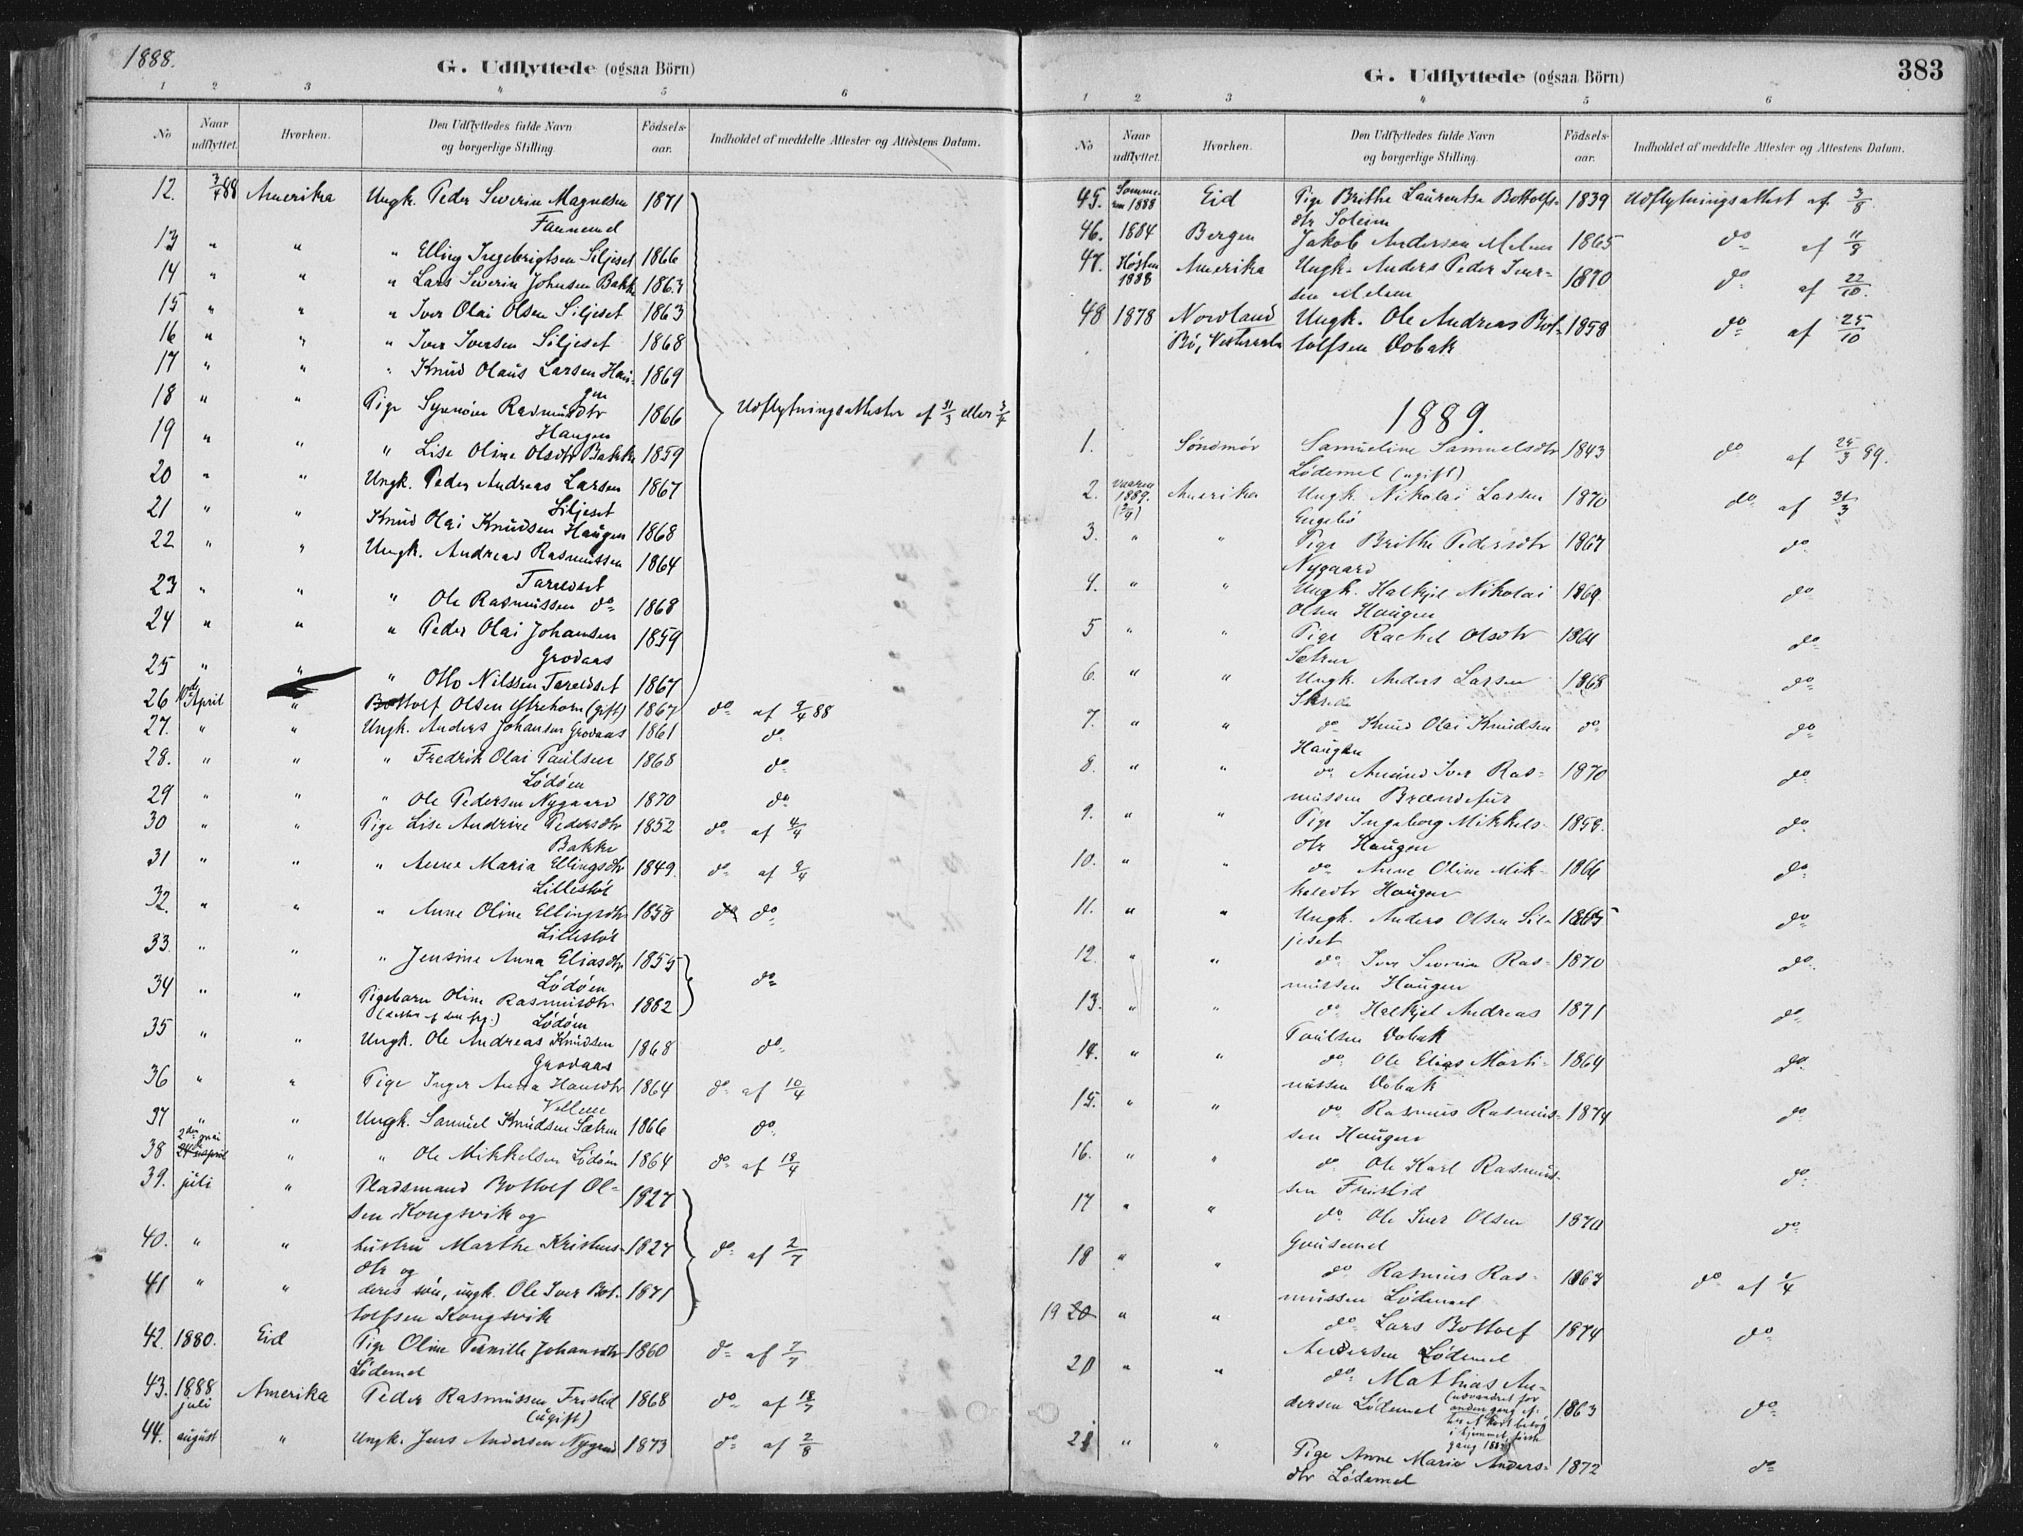 1888.
G. Udflyttede (ogsaa Börn)
1 2 3 4 5 6
No
Naar udflyttet.
Hvorhen.
Den Udflyttedes fulde Navn og borgerlige Stilling.
Födsels-aar.
Indholdet af meddelte Attester og Attestens Datum.
12. 3/4 88 Amerika Ungk. Peder Severin Magnesen 1871
13 " " " Elling Ingebrigtsen Siljeset 1866
14 " " " Lars Severin Johnsen Bakke 1863
15 " " " Iver Olai Olsen Siljeset 1863
16 " " " Iver Iversen Siljeset 1868
17 " " " Knud Olaus Larsen Hau-
gen 1869
18 " " Pige Synnöve Rasmusdtr
Haugen 1866 Udflytningsattester af 31/3 eller 3/4
19 " " " Lise Oline Olsdtr Bakke 1859
20 " " Ungk. Peder Andreas Larsen
Siljeset 1867
21 " " Knud Olai Knudsen Haugen 1868
22 " " Ungk. Andreas Rasmussen
Taraldset 1864
23 " " " Ole Rasmussen do 1868
24 " " " Peder Olai Johansen
Grodaas 1859
25 " " " Otto Nilssen Taraldset 1867
26 10de April " Bottolf Olsen Ytrehorn (gift) 1867 do af 9/4 88
27. " " Ungk. Anders Johansen Grodaas 1861 do
28. " " " Fredrik Olai Paulsen
Lödöen 1868 do
29 " " " Ole Pedersen Nygaard 1870 do
30 " " Pige Lise Andrine Pedersdtr
Bakke 1852 do af 4/4
31 " " " Anne Maria Ellingsdtr
Lillestöl 1849. do af 9/4
32. " " " Anne Oline Ellingsdtr
Lillestöl 1858 do do
33. " " " Jensine Anna Eliasdtr
Lödöen 1855
34 " " Pigebarn Oline Rasmusdtr
Lödöen 1882 do
35 " " Ungk. Ole Andreas Knudsen
Grodaas 1868 do
36 " " Pige Inger Anna Hansdtr
1864 do af 10/4
37 " " Ungk. Samuel Knudsen Sætren 1866 do
38 2den mai " " Ole Mikkelsen Lödöen 1864 do af 18/4
39. juli " Pladsmand Bottolf Ol-
sen Kongsvik og 1827
40. " " hustru Marthe Kristens-
dtr og 1827 do af 2/7
41 " " deres sön, ungk. Ole Iver Bot-
tolfsen Kongsvik 1871
42. 1880. Eid Pige Oline Pernille Johansdtr
Lödemel 1860 do af 7/7
43. 1888
juli Amerika Peder Rasmussen Fristid
(ugift) 1868 do af 18/7
44. august " Ungk. Jens Andersen Nygard 1873 do af 2/8
383
G. Udflyttede (ogsaa Börn)
1 2 3 4 5 6
No
Naar udflyttet.
Hvorhen.
Den Udflyttedes fulde Navn og borgerlige Stilling.
Födsels-aar.
Indholdet af meddelte Attester og Attestens Datum.
45. Somme-
ren 1888 Eid Pige Brithe Laurentse Bottolfs-
dtr Soleim 1839 Udflytningsattest af 3/8
46. 1884 Bergen Jakob Andersen Melsen 1865 do af 11/8
47. Hösten
1888 Amerika Ungk. Anders Peder Iver-
sen Melsen 1870 do af 22/10.
48 1878 Nordland
Bö, Vesteraalen Ungk. Ole Andreas Bot-
tolfsen Dobak 1858 do af 25/10
1889.
1. Söndmör Samueline Samuelsdtr
Lödemel (ugift) 1843 do af 25/3 89.
2. Vaaren
1889. Amerika Ungk. Nikolai Larsen
Engebö 1870 do af 31/3
3. " " Pige Brithe Pedersdtr
Nygaard 1867 do
4. " " Ungk. Halkjel Nikolai
Olsen Haugen 1869. do
5 " " Pige Rachel Olsdtr
Sætren 1864 do
6. " " Ungk. Anders Larsen
Skrede 1868 do
7. " " do Knud Olai Knudsen
Haugen do do
8. " " do Amund Iver Ras-
mussen Brændefur 1870 do
9. " " Pige Ingeborg Mikkels-
dtr Haugen 1858. do
10. " " do Anne Oline Mik-
kelsdtr Haugen 1866 do
11. " " Ungk. Anders Olsen Sil-
jeset 1865 do
12. " " do Iver Severin Ras-
mussen Haugen 1870 do
13. " " do Halkjel Andreas
Paulsen Dobak 1871 do
14. " " do Ole Elias Marti-
nussen Dobak 1864 do
15. " " do Rasmus Rasmus-
sen Haugen 1874 do
16. " " do Ole Karl Rasmus-
sen Fristid do
17 " " do Ole Iver Olsen
1870 do
18 " " do Rasmus Ras-
mussen Lödemel 1863 do af 1/4
19 20 " " do Lars Bottolf
Andersen Lödemel 1874 do
20 " " do Mathias An-
dersen Lödemel (udvandret for
anden gang ef-
ter et kort besög
i hjemmet, förste
gang 1883) 1863 do
21 " " Pige Anne Marie Anders-
dtr Lödemel 1872 do